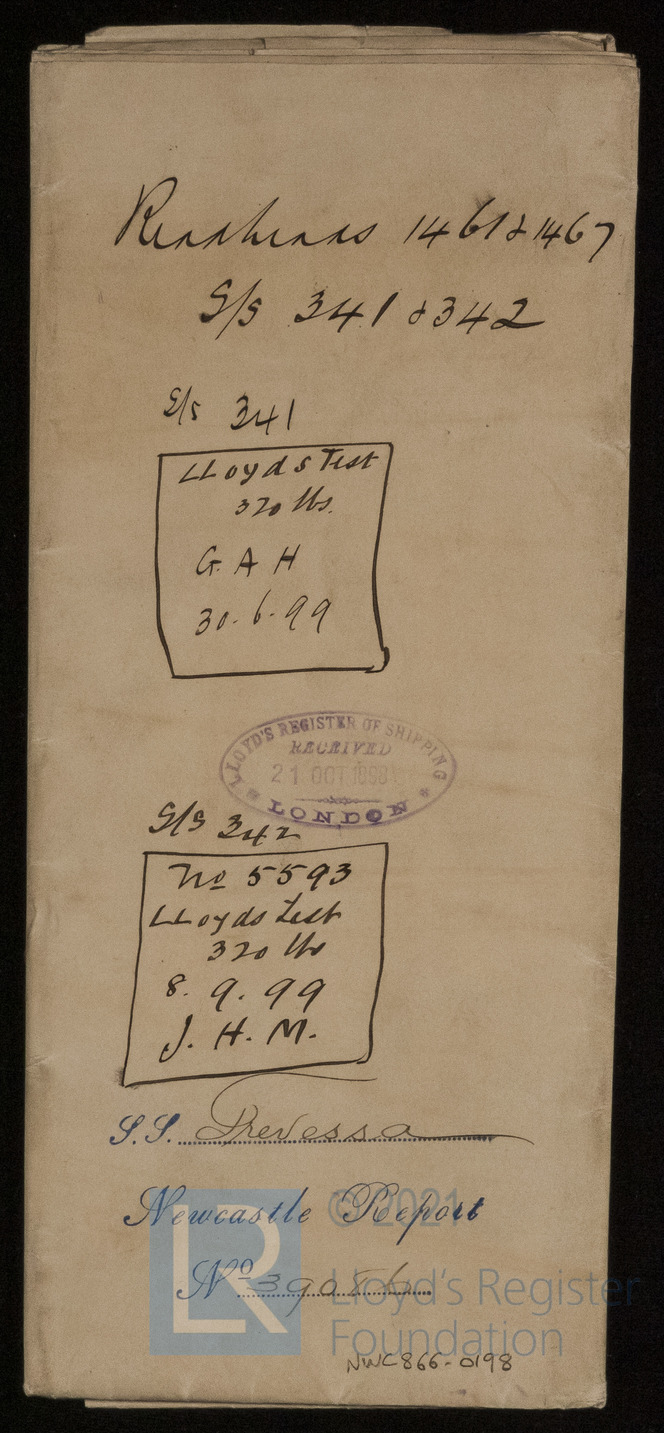 Readheads 1461 & 1467
S/S 341 & 342
S/S 341
LLoyds Test
320 lbs.
G. A H
30. 6. 99
LLOYD'S REGISTER OF SHIPPING
RECEIVED
21 OCT 1899
LONDON
S/S 342
No 5593
LLoyds Test
320 lbs
8. 9. 99
J. H. M.
S.S. Trevessa
Newcastle Report
No 39086
© 2021
Lloyd's Register
Foundation
NWC866-0198